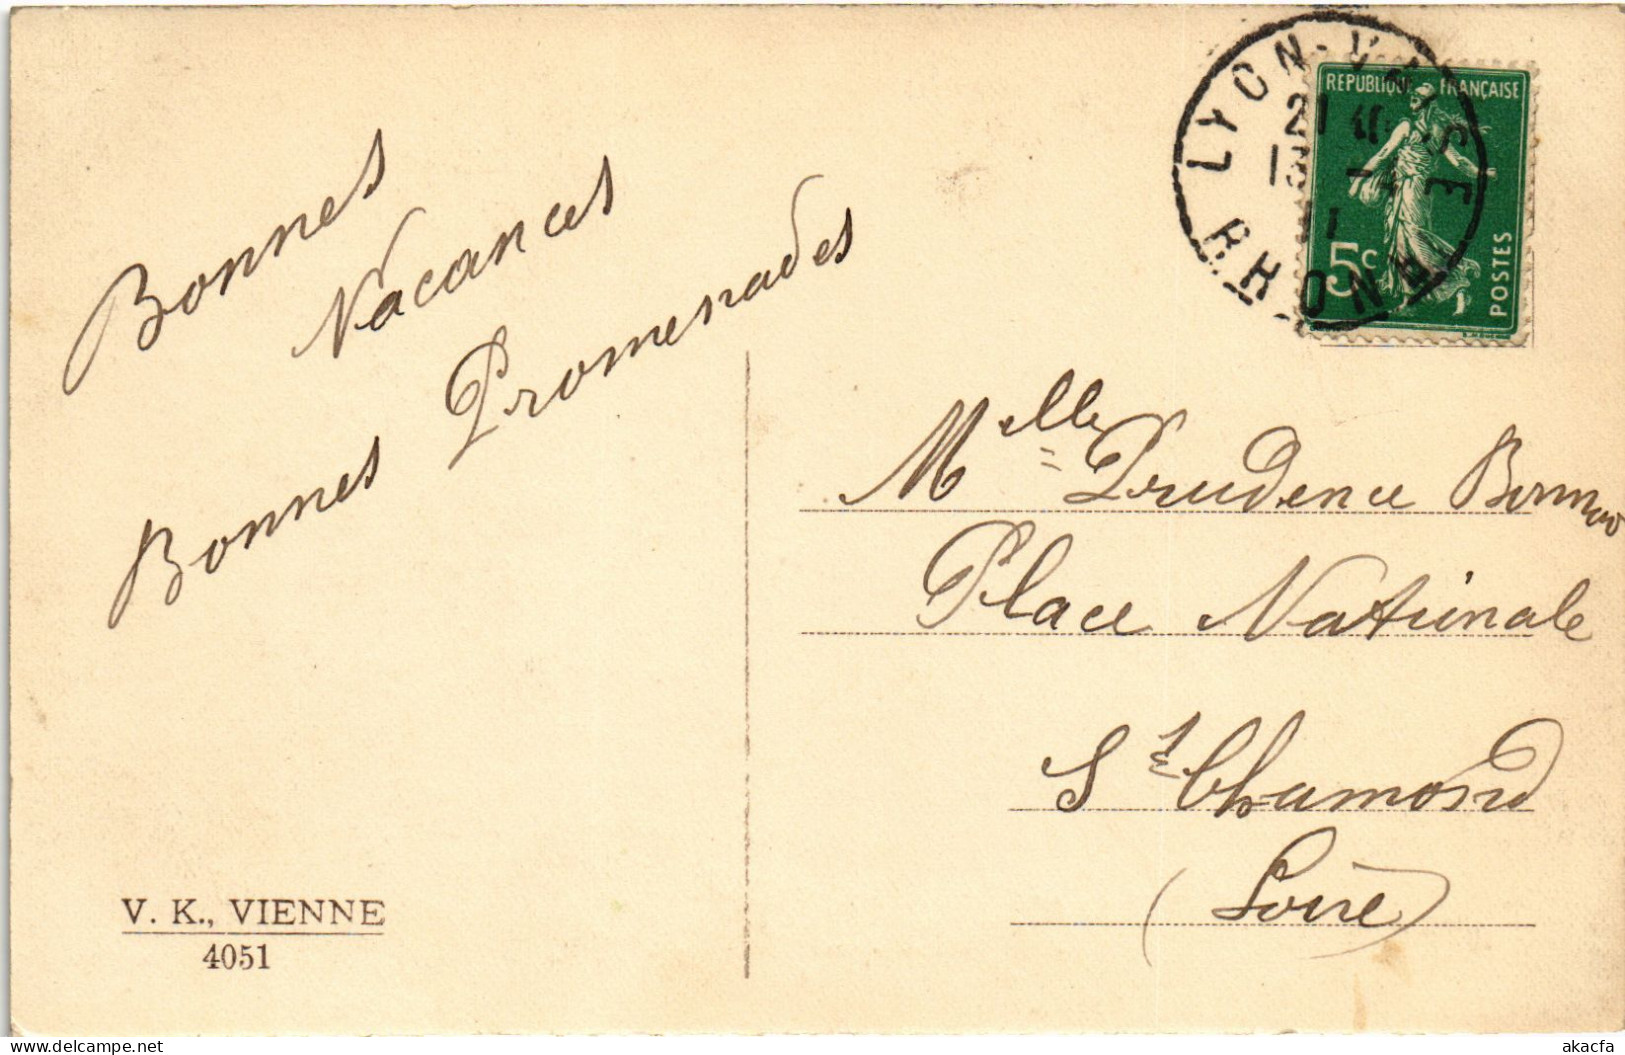 Bonnes
Vacances
Bonnes Promenades
V. K., VIENNE
4051
LYON-VAISE
RHONE
21
11
REPUBLIQUE FRANÇAISE
5c
POSTES
Melle Prudence
Place Nationale
St Chamond
(Loire)
delcampe.net
akacfa